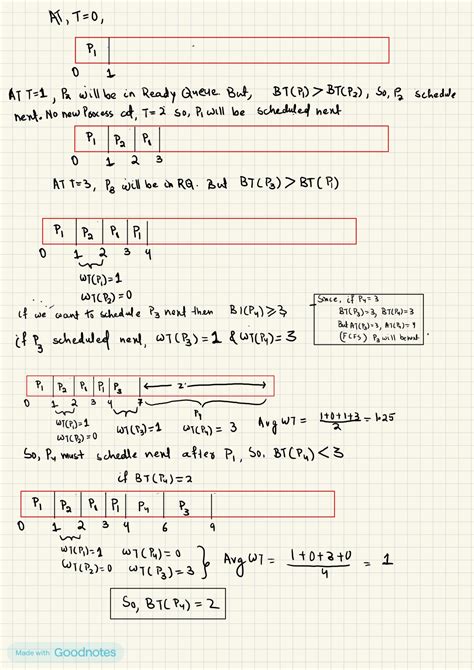 AT, T=0,
P1
0 1
AT T=1, P2 will be in Ready Queue. But, BT(P1) > BT(P2), So, P2 schedule
next. No new Process at, T=2 so, P1 will be scheduled next
P1 P2 P1
0 1 2 3
AT T=3, P3 will be in RQ. But BT(P3) > BT(P1)
P1 P2 P1 P1
0 1 2 3 4
WT(P1)=1
WT(P2)=0
if we want to schedule P3 next then BT(P4) ≥ 3,
Since, if P4=3
BT(P3)=3, BT(P4)=3
But AT(P3)=3, AT(P4)=4
(FCFS) P3 will be next
if P3 scheduled next, WT(P3)=1 & WT(P4)=3
P1 P2 P1 P1 P3
0 1 2 3 4 7
P4
WT(P1)=1
WT(P2)=0
WT(P3)=1 WT(P4)=3 Avg WT = (1+0+1+3)/2 = 1.25
So, P4 must schedle next after P1, So, BT(P4) < 3
if BT(P4)=2
P1 P2 P1 P1 P4 P3
0 1 2 3 4 6 9
WT(P1)=1 WT(P4)=0
WT(P2)=0 WT(P3)=3
Avg WT = (1+0+3+0)/4 = 1
So, BT(P4) = 2
Made with Goodnotes